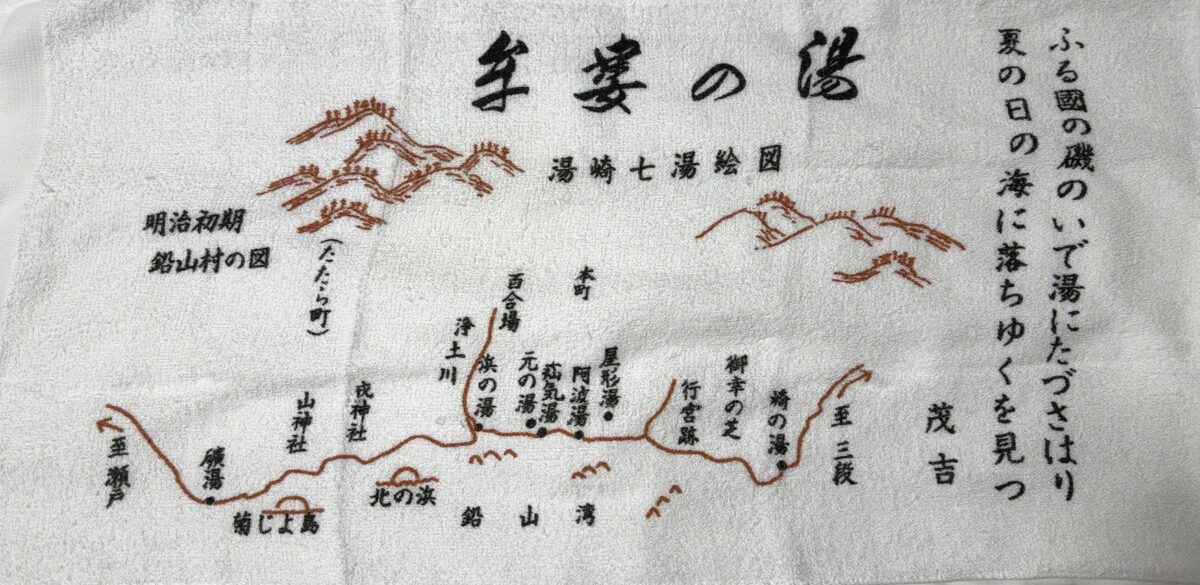 牟婁の湯
湯崎七湯絵図
ふる國の磯のいで湯にたづさはり
夏の日の海に落ちゆくを見つ
茂吉
明治初期
鉛山村の図
(たたら町)
本町
百合場
浄土川
浜の湯
元の湯
疝気湯
阿波湯
屋形湯
行宮跡
御幸の芝
崎の湯
至三段
戎神社
山神社
礦湯
至瀬戸
菊じよ島
北の浜
鉛山湾